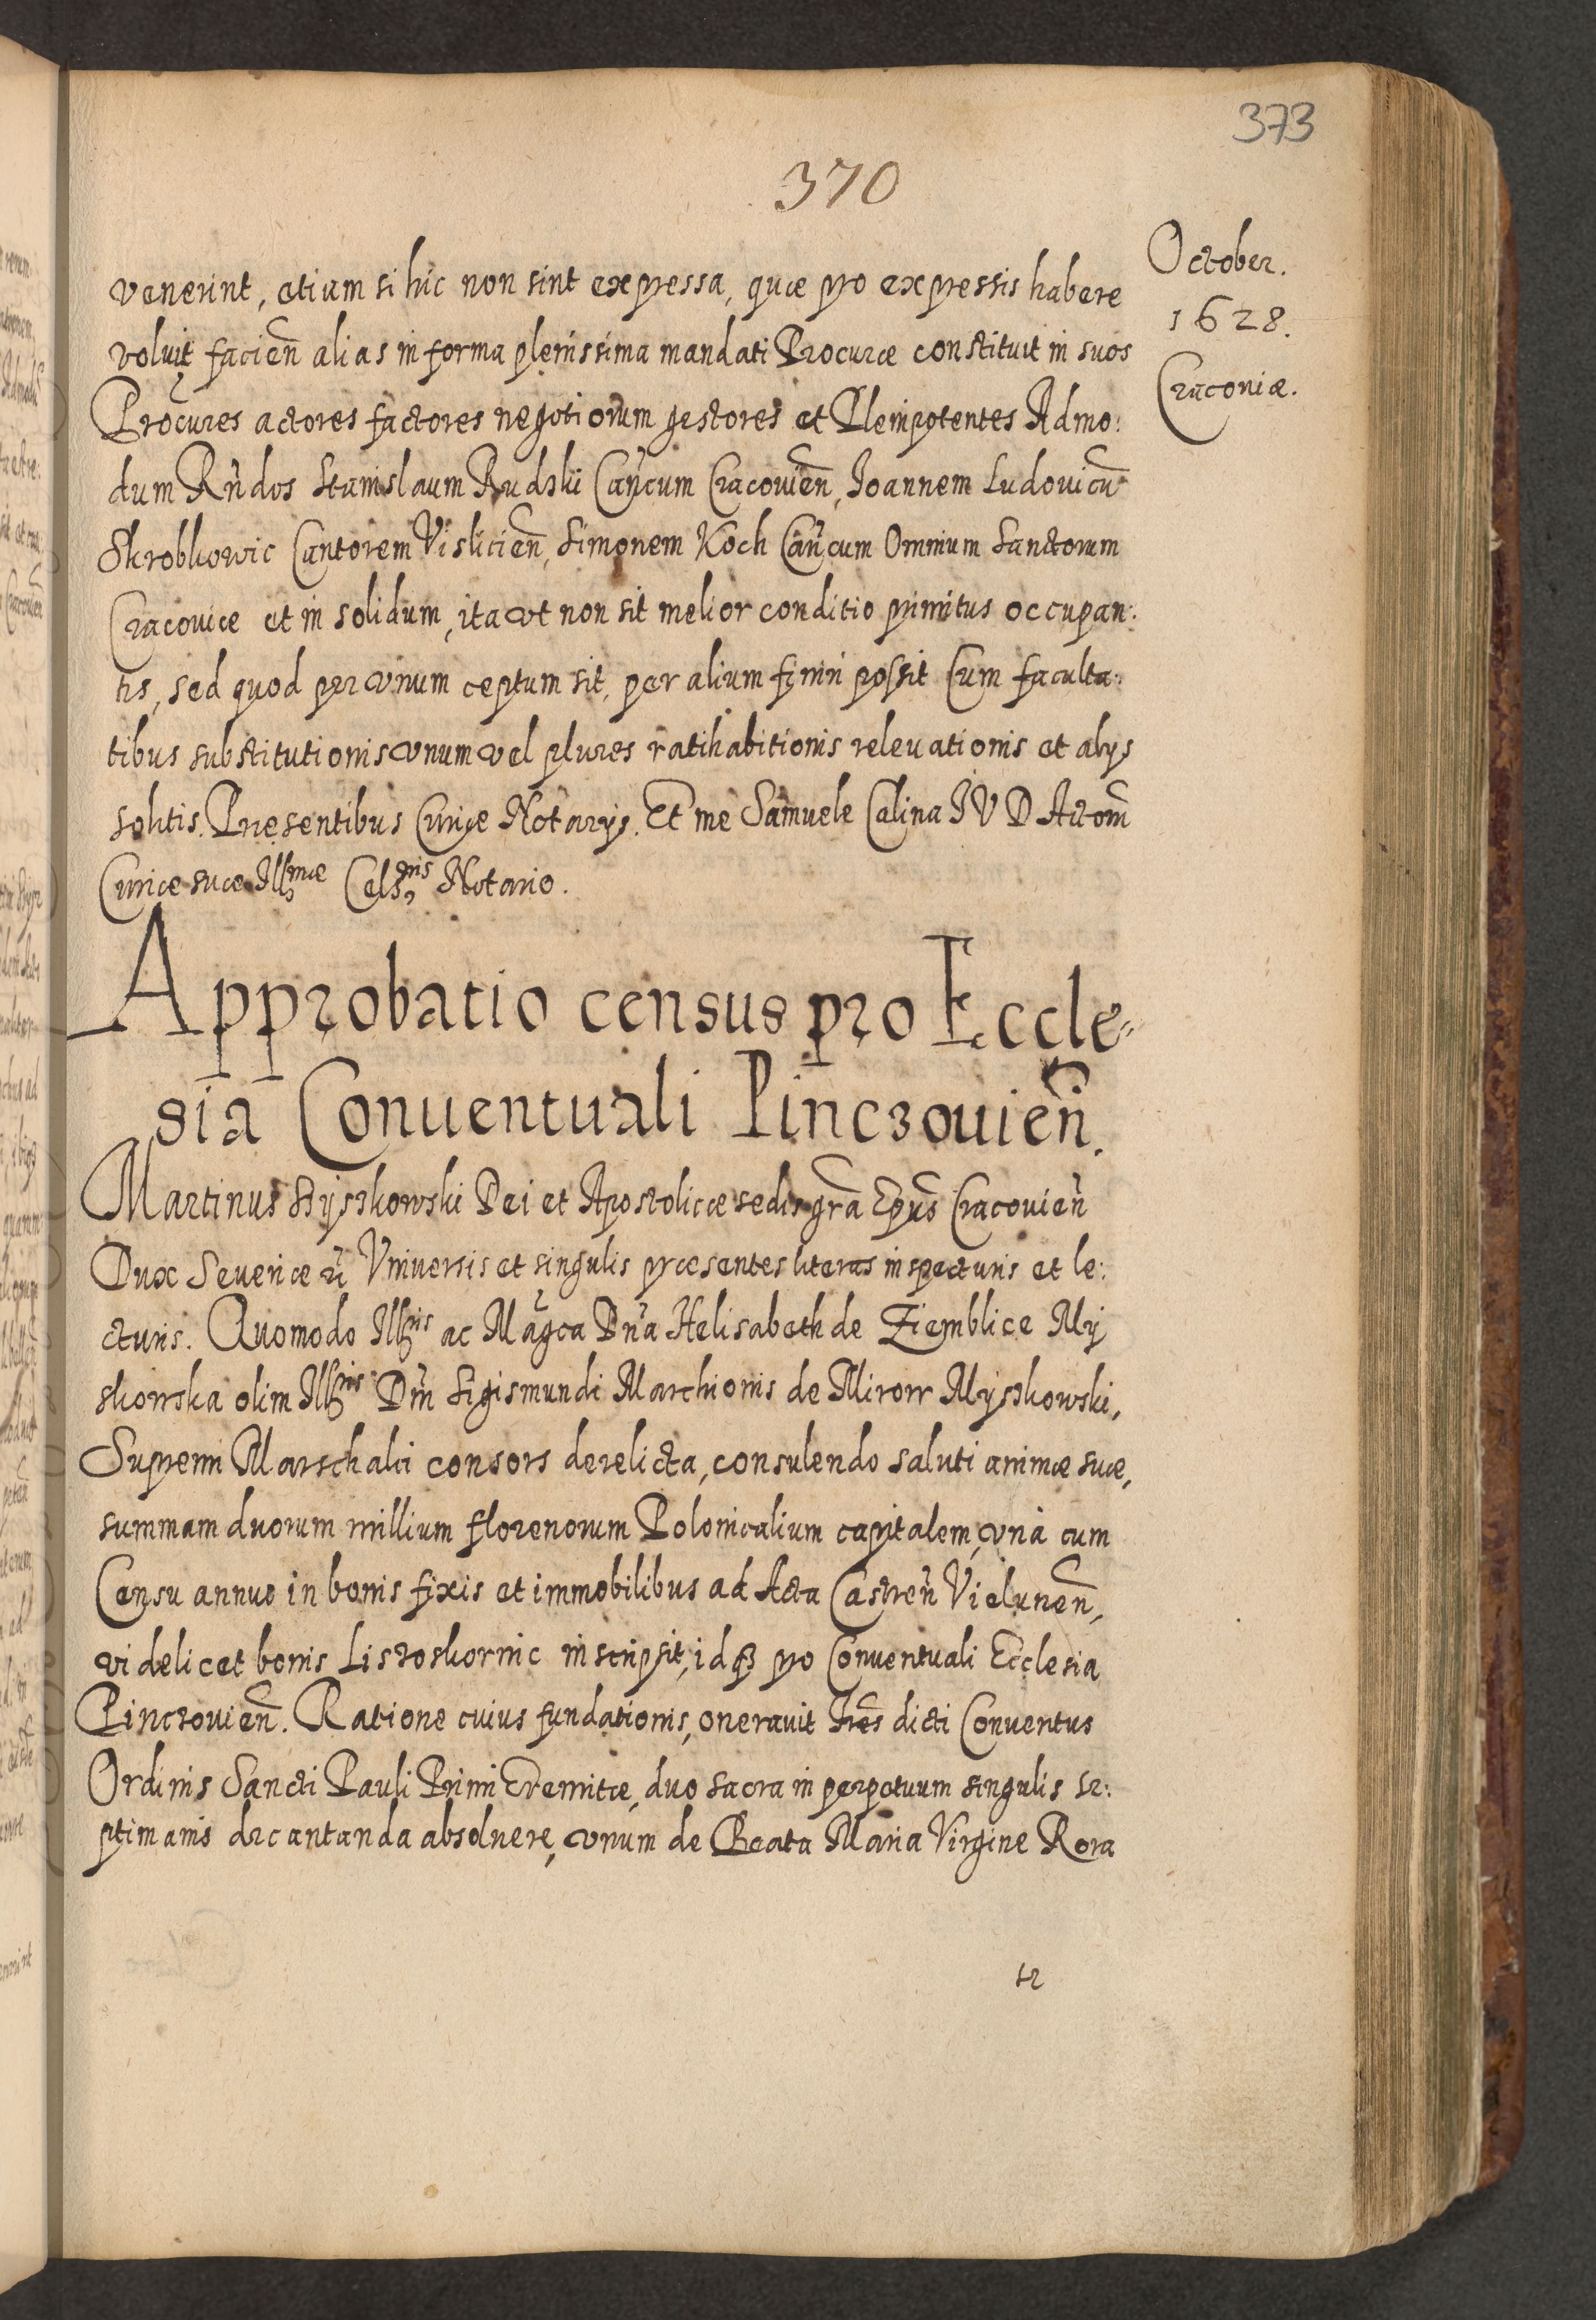 373
370
October.
1628.
Cracoviæ.
venerint, etiam si hic non sint expressa, quæ pro expressis habere
voluit facien̄ alias in forma plenissima mandati Procuræ constituit in suos
Procures actores factores negotiorum gestores et Plenipotentes Admo:
dum Rn̄dos Stanislaum Rudzki Can̄cum Cracovien̄, Joannem Ludovicū
Skrobkowic Cantorem Vislicien̄, Simonem Koch Can̄cum Omnium Sanctorum
Cracoviæ et in solidum, ita vt non sit melior conditio primitus occupan:
tis, sed quod per vnum ceptum sit, per alium finiri possit Cum faculta:
tibus substitutionis vnum vel plures ratihabitionis relevationis et alys
solitis. Presentibus Curiæ Notarys. Et me Samuele Calina I V D Actorū
Curiæ suæ Illmæ Celsnis Notario.
Approbatio census pro Eccle-
sia Conventuali Pinczovien̄.
Martinus Szyszkowski Dei et Apostolicæ sedis gr̄a Ep̄us Cracovien̄
Dux Severiæ Vniversis et singulis præsentes literas inspecturis et le:
cturis. Quomodo Illris ac Magca Dn̄a Helisabeth de Ziemblice My
skowska olim Illris Dn̄i Sigismundi Marchionis de Mirow Myszkowski,
Supremi Marschalci consors derelicta, consulendo saluti animæ suæ,
summam duorum millium florenorum Polonicalium capitalem, vnà cum
Censu annuo in bonis fixis et immobilibus ad Acta Castren̄ Vielunen̄,
videlicet bonis Liszoskornic inscripsit, idq3 pro Conventuali Ecclesia
Pinczovien̄. Ratione cuius fundationis, oneravit Fr̄es dicti Conventus
Ordinis Sancti Pauli Primi Eremitæ, duo sacra in perpetuum singulis se:
ptimanis decantanda absolvere, vnum de Beata Maria Virgine Rora
te